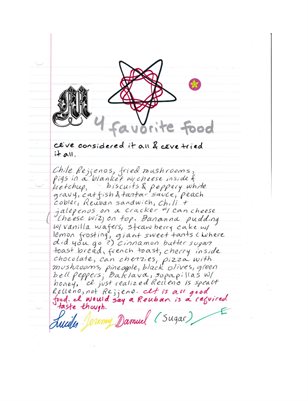 My favorite food
I've considered it all & I've tried
it all.
Chile Rejjenos, fried mushrooms,
pigs in a blanket w/cheese inside &
ketchup, biscuits & peppery white
gravy, catfish & tartar sauce, peach
cobler, Reuban sandwich, chili &
jalepenos on a cracker w/ can cheese
(cheese wiz) on top. Bananna pudding
w/vanilla wafers, strawberry cake w/
lemon frosting, giant sweet tarts (where
did you go?) Cinnamon butter sugar
toast bread, french toast, cherry inside
chocolate, can cherries, pizza with
mushrooms, pineapple, black olives, green
bell peppers, Baklava, sopapillas w/
honey. I just realized Relleno is spealt
Relleno, not Rejjeno. It is all good
food. I would say a Rouban is a required
taste though.
Lucille Jeremy Damuel (Sugar)